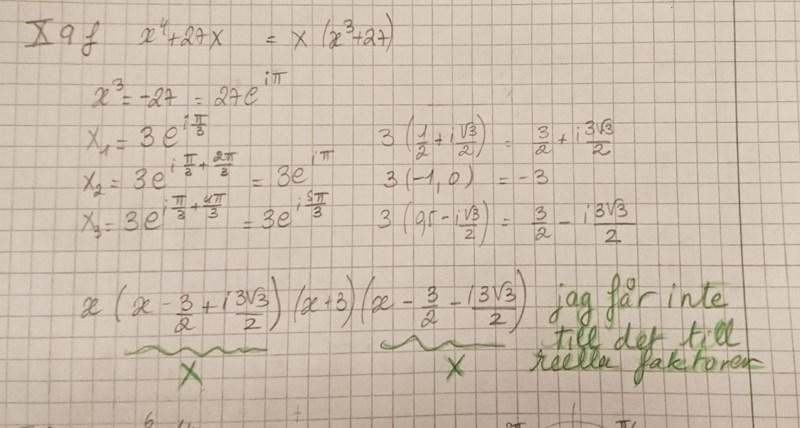 X 9 f x⁴+27x = x (x³+27)
x³ = -27 = 27e^{iπ}
x₁ = 3e^{i\frac{π}{3}} 3(\frac{1}{2}+\frac{i√3}{2}) = \frac{3}{2}+i\frac{3√3}{2}
x₂ = 3e^{i\frac{π}{3}+\frac{2π}{3}} = 3e^{iπ} 3(-1,0) = -3
x₃ = 3e^{i\frac{π}{3}+\frac{4π}{3}} = 3e^{i\frac{5π}{3}} 3(0,5-\frac{i√3}{2}) = \frac{3}{2}-i\frac{3√3}{2}
x(x-\frac{3}{2}+i\frac{3√3}{2})(x+3)(x-\frac{3}{2}-\frac{i3√3}{2}) jag får inte
till det till
reella faktorer
x x